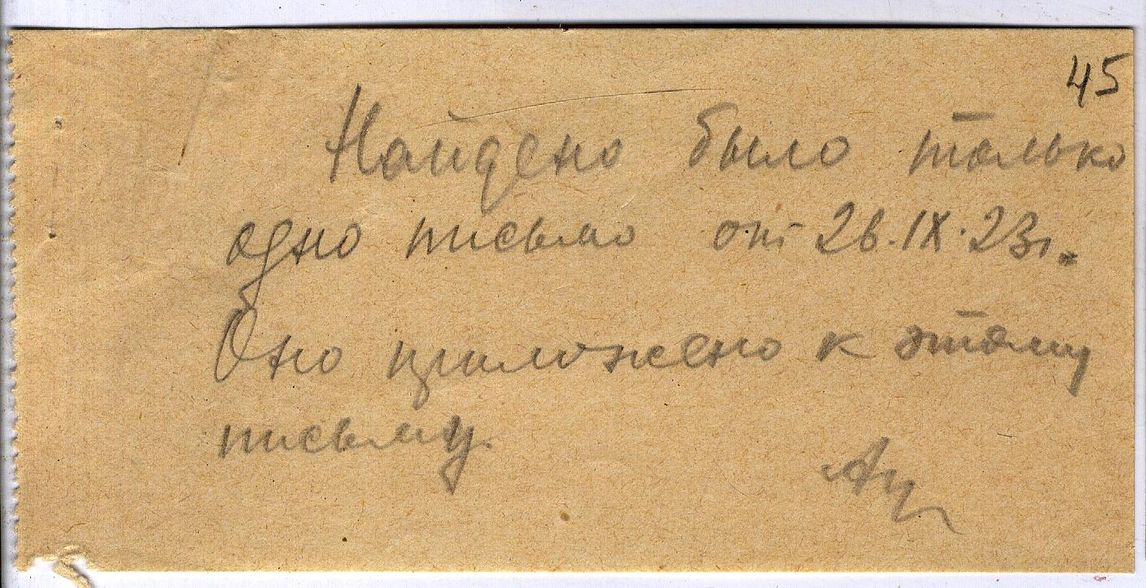 45
Найдено было только
одно письмо от 26.IX.23г.
Оно приложено к этому
письму.